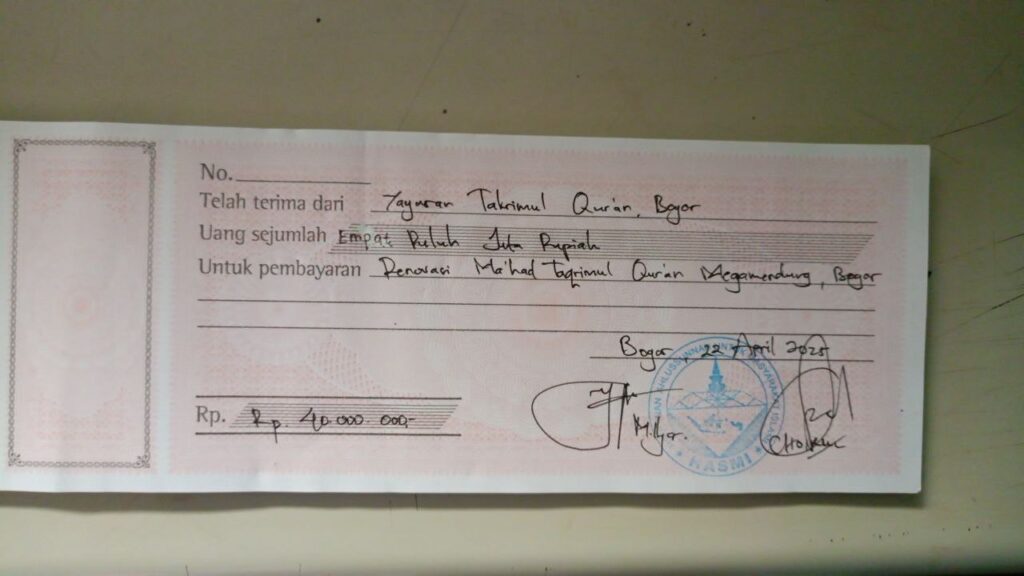 No.
Telah terima dari Yayasan Takrimul Qur'an, Bogor
Uang sejumlah Empat Puluh Juta Rupiah
Untuk pembayaran Renovasi Ma'had Taqrimul Qur'an Megamendung, Bogor
Bogor, 22 April 2025
Rp. Rp. 40.000.000,-
HASMI